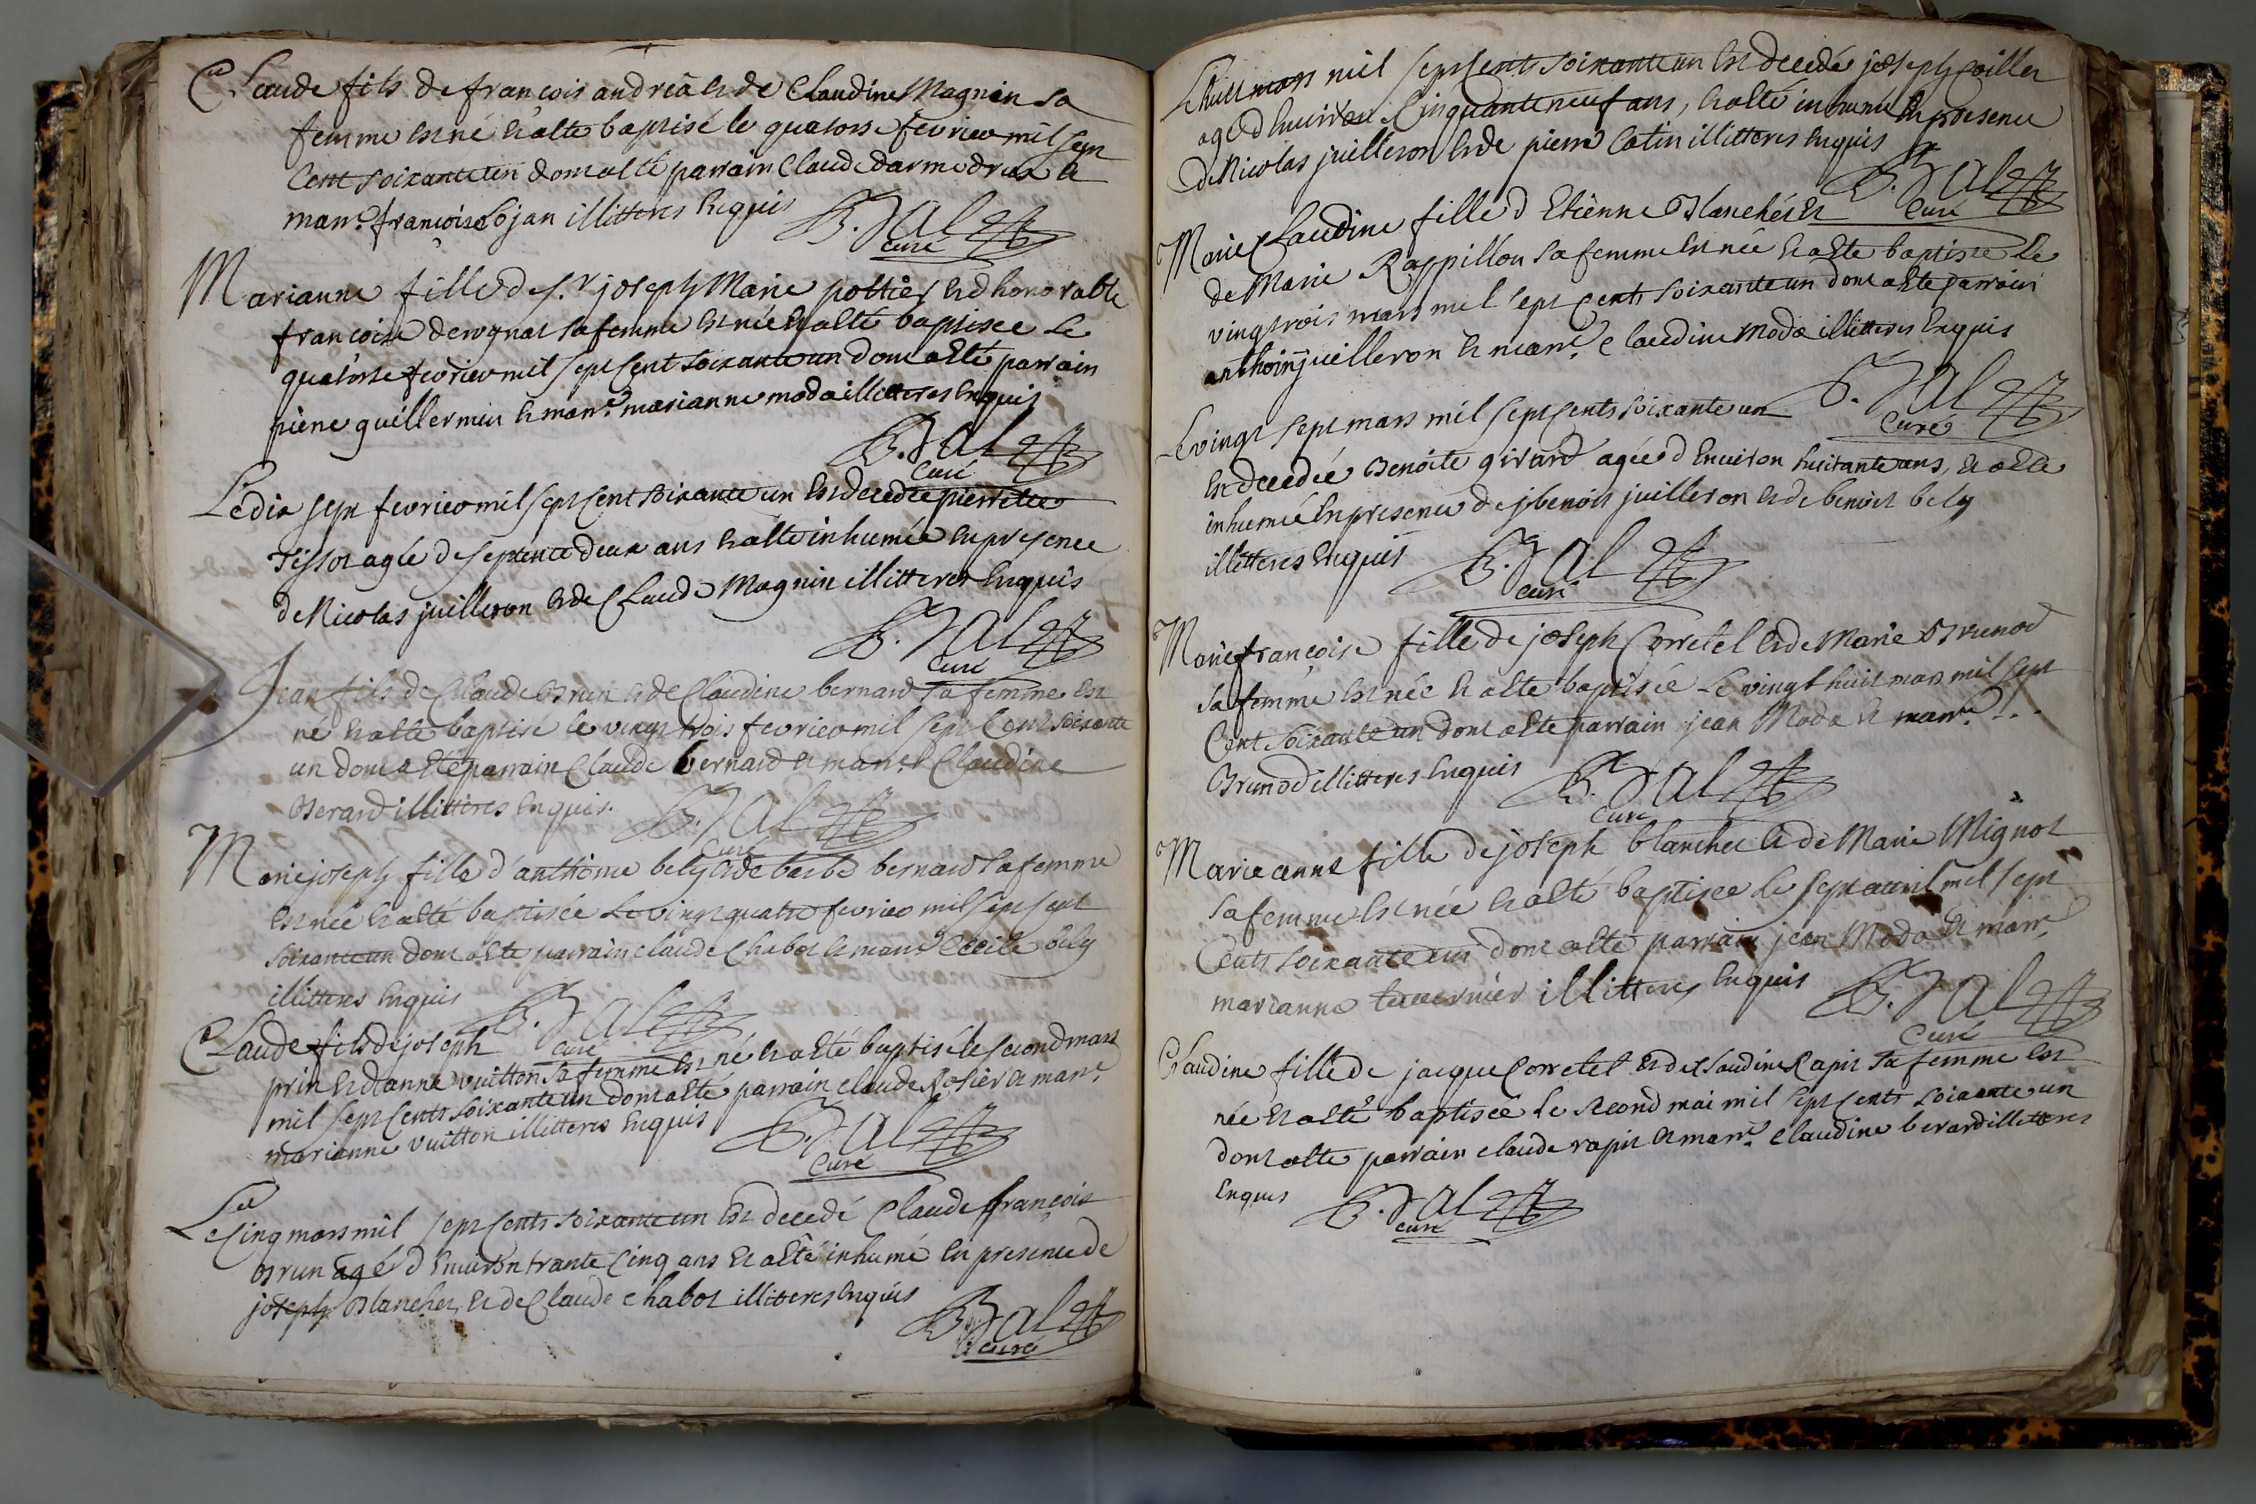 Claude fils de françois andréa et de Claudine Magnin sa
femme est né et a esté baptisé le quatorse fevrier mil sept
Cent soixante un dont a esté parrain Claude darmedrus et
marr.e françoise Cojan illitteres Enquis
B. Jal
Curé
Marianne fille de S.r joseph Marie pottier et dhonorable
francoise derognat sa femme est née et a esté baptisée le
quatorse fevrier mil sept Cent soixante un dont a esté parrain
piere guillermin et marr.e marianne moda illitteres Enquis
B. Jal
Curé
Le dix sept fevrier mil sept Cent soixante un est decedée pierrette
Tissot agée de septente deux ans et a esté inhumée en presence
de Nicolas juilleron et de Claude Magnin illitteres Enquis
B. Jal
Curé
Jean fils de Claude Brun et de Claudine bernard sa femme est
né et a esté baptisé le vingt trois fevrier mil sept Cent soixante
un dont a esté parrain Claude bernard et marr.e Claudine
Berard illitteres Enquis.
B. Jal
Curé
Marie joseph fille d'anthoine bely et de barbe bernard sa femme
est née et a esté baptisée le vingt quatre fevrier mil sept sept
soixante un dont a esté parrain claude Chabot et marr.e Cecile bely
illitteres Enquis
B. Jal
Curé
Claude fils de joseph
prin et d'anne vuitton sa femme est né et a esté baptisé le second mars
mil sept Cents soixante un dont a esté parrain claude Rosier et marr.e
marianne vuitton illitteres Enquis
B. Jal
Curé
Le Cinq mars mil sept Cents soixante un est decedé Claude françois
Brun agé d'Environ trante Cinq ans et a esté inhumé en presence de
joseph Blanchet et de Claude Chabot illitteres Enquis
B. Jal
Curé
Le huit mars mil sept Cents soixante un est decedé joseph Coillet
agé d'Environ Cinquante neuf ans, et a esté inhumé En presence
de Nicolas juilleron et de pierre Catin illitteres Enquis
B. Jal
Curé
Marie Claudine fille d'Etienne Blanchet et
de Marie Rappillon sa femme est née et a esté baptisée le
vingt trois mars mil sept Cents soixante un dont a esté parrain
anthoine juilleron et marr.e claudine Moda illitteres Enquis
B. Jal
Curé
Le vingt sept mars mil sept Cents soixante un
est decedée Benoite girard agée d'Environ huitante ans, et a esté
inhumée En presence de benoit juilleron et de benoit bely
illitteres Enquis
B. Jal
Curé
Marie françoise fille de joseph Corretel et de Marie Brunod
sa femme est née et a esté baptisée le vingt huit mars mil sept
Cent soixante un dont a esté parrain jean Moda et marr.e . . .
Brunod illitteres Enquis
B. Jal
Curé
Marie anne fille de joseph blanchet et de Marie Mignot
sa femme est née et a esté baptisée le sept avril mil sept
Cents soixante un dont a esté parrain jean Moda et marr.e
marianne tavernier illitteres Enquis
B. Jal
Curé
Claudine fille de jacque Corretel et de Claudine Rapit sa femme est
née et a esté baptisée le second mai mil sept Cents soixante un
dont a esté parrain claude rapit et marr.e Claudine berard illitteres
Enquis
B. Jal
Curé